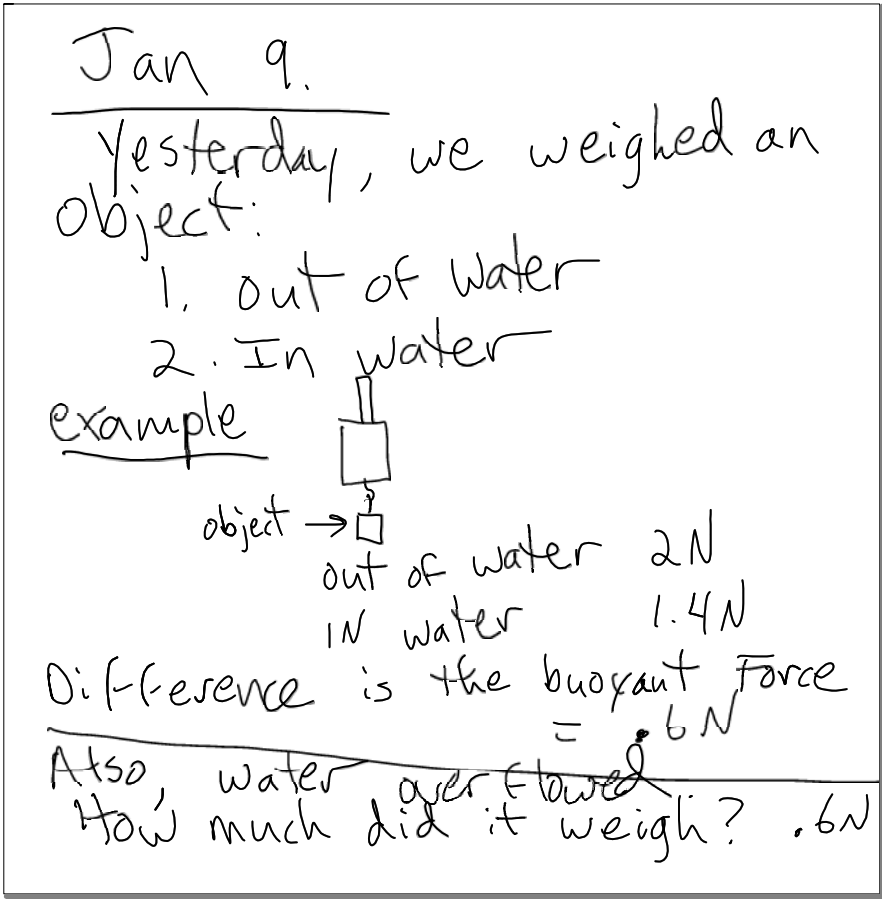 Jan 9.
Yesterday, we weighed an
object:
1. out of water
2. In water
example
object →
out of water 2N
IN water 1.4N
Difference is the buoyant Force
= .6N
Also, water overflowed
How much did it weigh? .6N